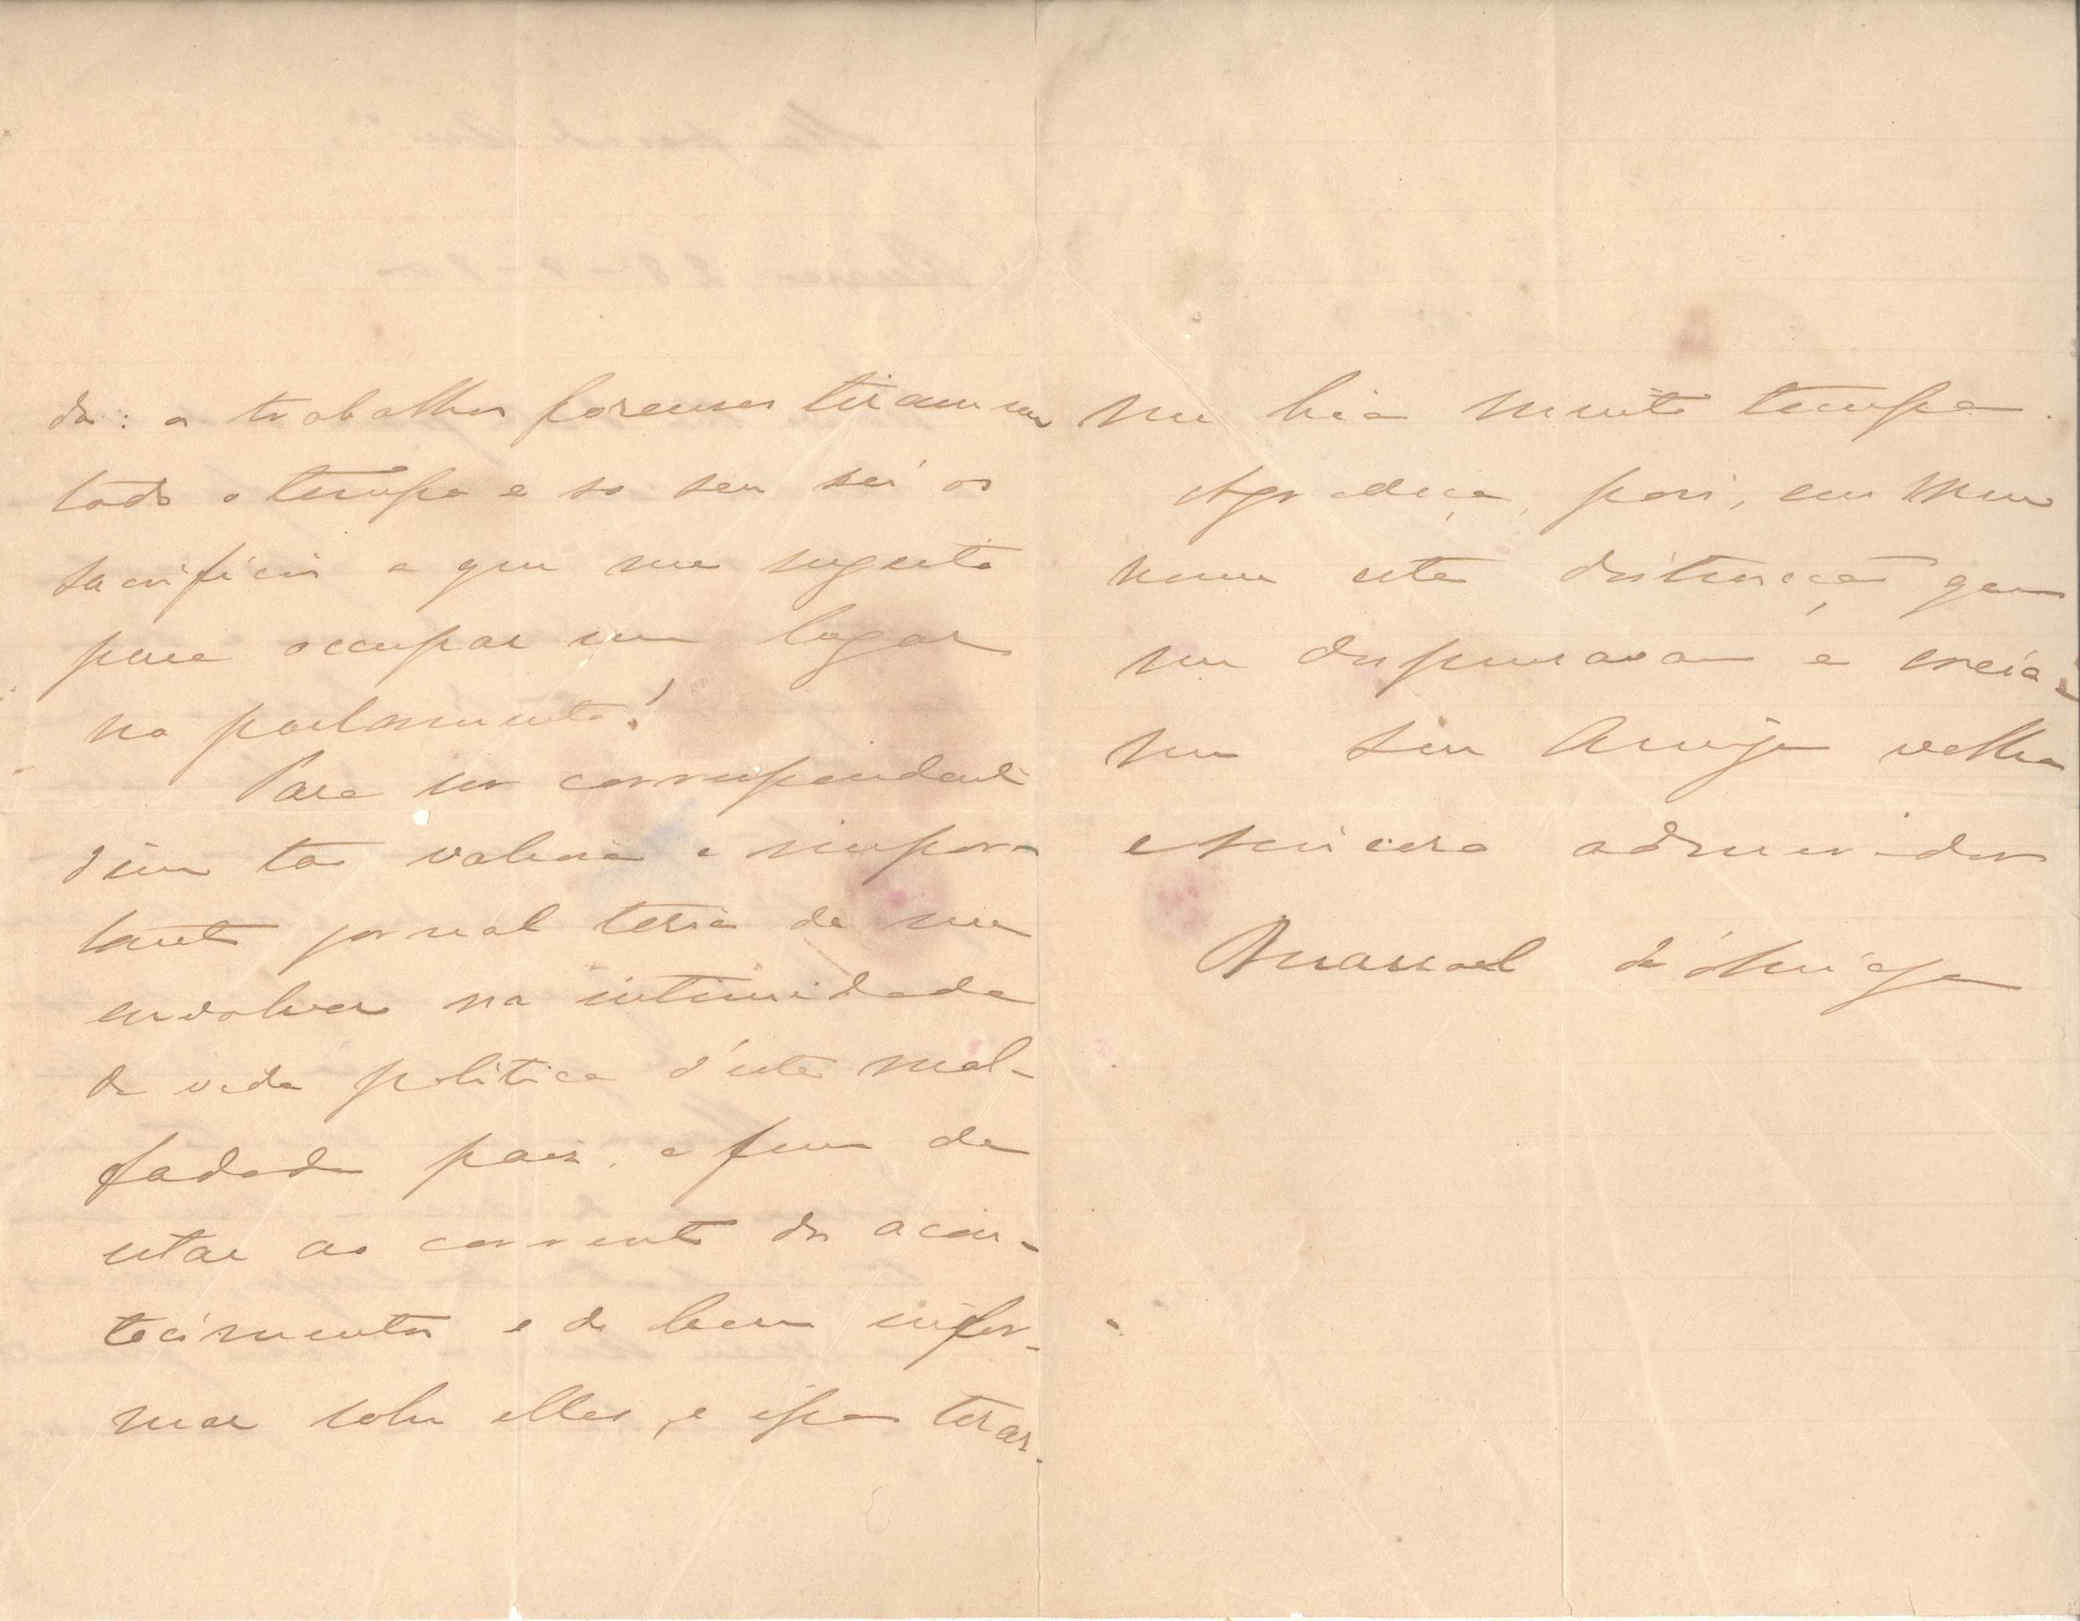 da: os trabalhos forenses tiram-me
todo o tempo e so eu sei os
sacrificios a que me sugeito
para occupar um logar
no parlamento!
Para ser correspondente
d'um tão valioso e impor-
tante jornal teria de me
envolver na intimidade
da vida politica d'este mal-
fadado paiz, a fim de
estar ao corrente dos acon-
tecimentos e de bem infor-
mar sobre elles, e isso tirar-
me hia muito tempo.
Agradeça, pois, em meu
nome esta distincção que
me dispensavam e creia-
me seu Amigo velho
e sincero admirador
Manoel d'Arriaga